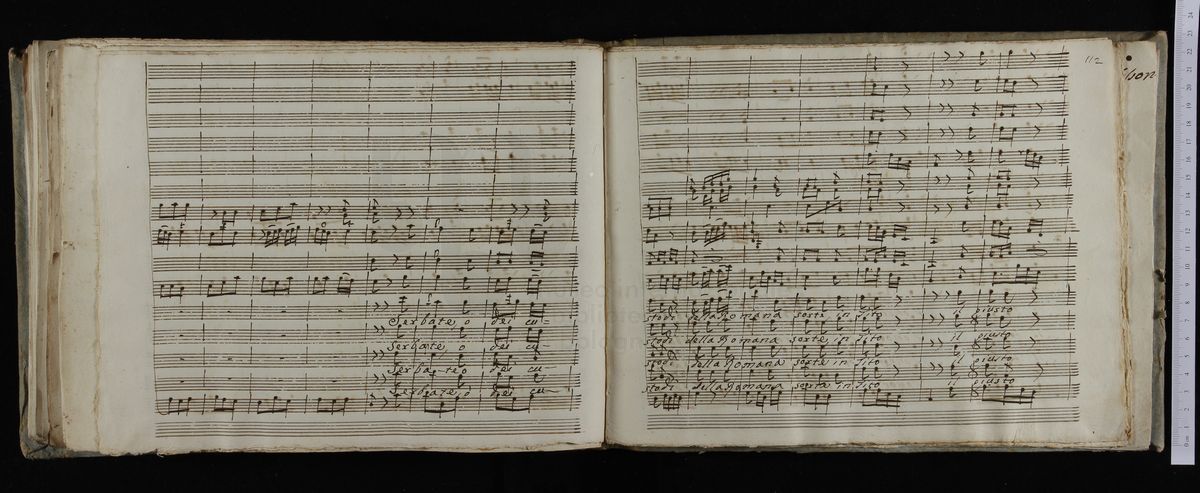 Serbate, o dei cu-
Serbate o dei cu-
Serbate o dei cu-
Serbate, o dei cu-
112
stodi della Romana sorte in Tito il giusto
stodi della Romana sorte in Tito il giusto
stodi della Romana sorte in Tito il giusto
stodi della Romana sorte in Tito il giusto